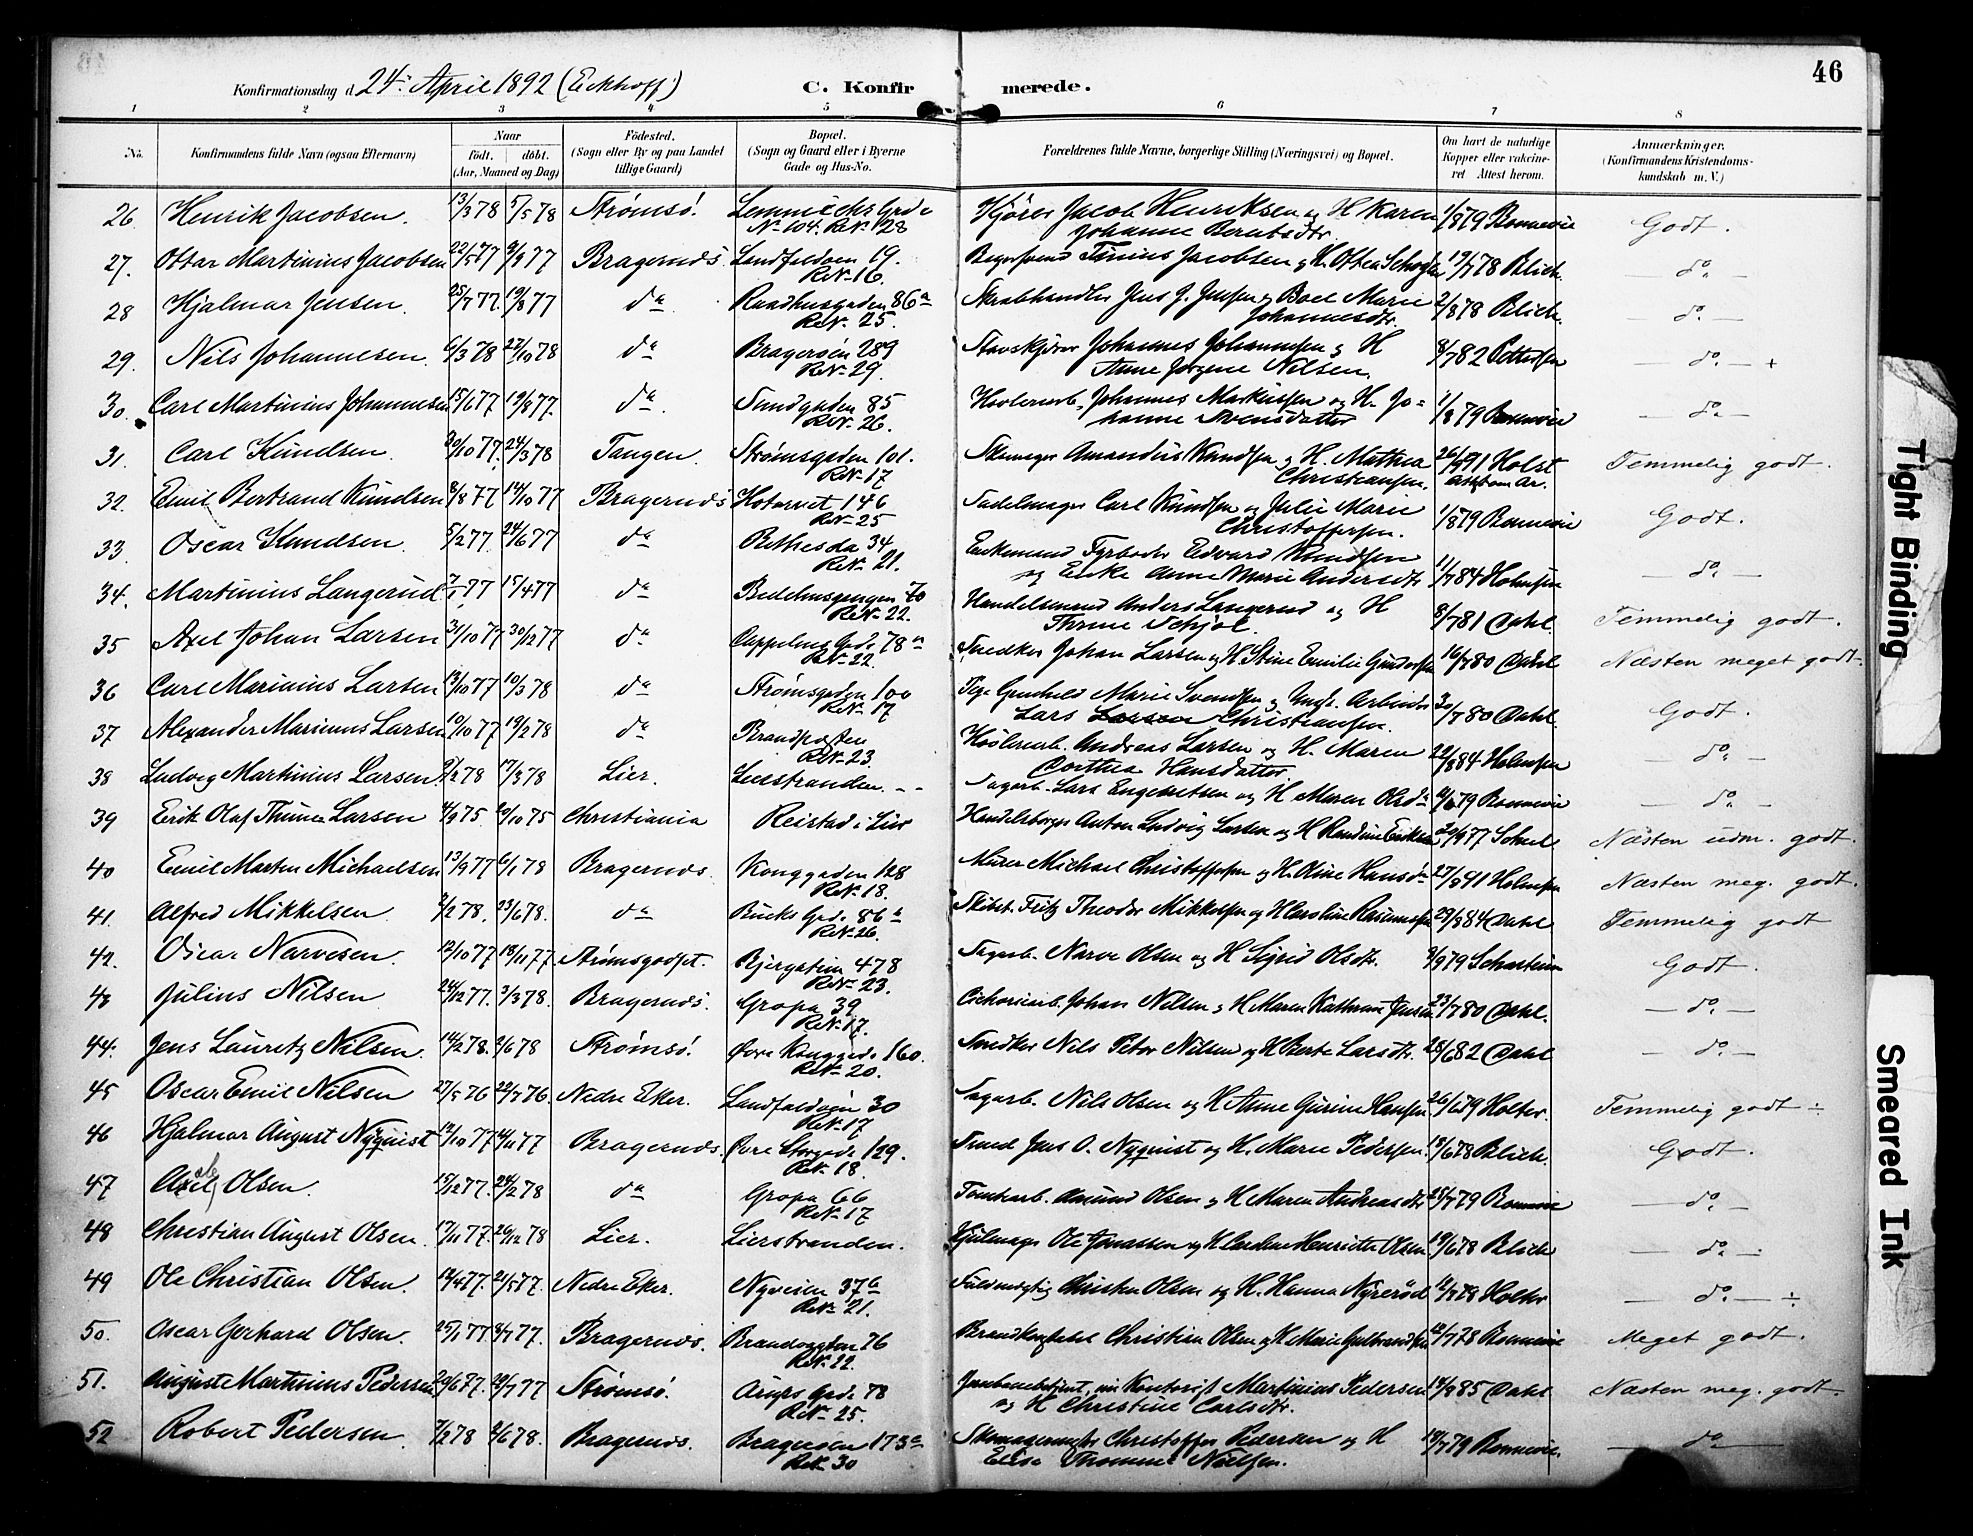 46
Konfirmationsdag d. 24. April 1892 (Eckhoff) C. Konfirmerede.
1 2 3 4 5 6 7 8
No. Konfirmandens fulde Navn (ogsaa Efternavn) Naar födt. döbt. (Aar, Maaned og Dag) Födested. (Sogn eller By og paa Landet tillige Gaard) Bopæl. (Sogn og Gaard eller i Byerne Gade og Hus-No. Forældrenes fulde Navne, borgerlige Stilling (Næringsvei) og Bopæl. Om havt de naturlige Kopper eller vakcineret Attest herom. Anmærkninger. (Konfirmandens Kristendomskundskab m. V.)
26 Henrik Jacobsen. 13/3 78 5/5 78 Strømsö. No 104. ReNo 128 Jacob Henriksen og H Karen Johanne Berntsdtr. 1/8 79 Bonnevie Godt.
27. Ottar Martinius Jacobsen 22/5 77 77 Bragernæs Landfaldøen 19. ReNo 16 Tinius Jacobsen & H. 19/7 78 Blich. do
28 Hjalmar Jensen. 25/7 77. 19/8 77 do Raadhusgaden 86a ReNo 25. Skrabhandler Jens J. Jensen og Boel Marie Johannesdtr. 2/8 78 Blich. do
29. Nils Johannesen. 6/3 78 22/10 78 do Bragerøen 289 ReNo 29. Johannes Johannesen og H Anne Jørgene Nilsen. 8/7 82 Pettersen do +
30. Carl Martinius Johannesen 15/6 77 19/8 77. do Sundgaden 85 ReNo 26. Høvleriarb. Johannes Markussen og H. Johanne Svensdatter 1/8 79 Bonnevie do
31. Carl Knudsen. 30/10 77. 24/3 78 Tangen. Strømsgaden 101. ReNo 17 Amandus Knudsen og H. Mathea Christiansen. 26/9 91 Holst Temmelig godt.
32. Emil Bertrand Knudsen 8/8 77 14/10 77 Bragernæs Kotorvet 146 ReNo 25 Sadelmager Carl Knudsen og Julie Marie Christoffersen. 1/8 79 Bonnevie Godt.
33. Oscar Knudsen. 5/2 77. 24/6 77 do Bethesda 34 ReNo 21. Enkemand Fyrbøder Edvard Knudsen og Enke Anne Marie Andersdtr 11/7 84 Holmsen do
34. Martinius Langerud 77 15/4 77 do Bedehusgangen 70 ReNo 22. Handelsmand Anders Langerud og H Thrine Schjol. 8/7 81 Dahl. Temmelig godt.
35 Axel Johan Larsen 31/10 77 30/12 77 do Cappelens Gade 78a ReNo 22. Snedker Johan Larsen og H Stine Emilie 16/7 80 Dahl Næsten meget godt.
36 Carl Marinius Larsen 13/10 77 10/3 78 do Strømsgaden 100 ReNo 17 Pige Gunhild Marie Svendsen og Ungk. Arbeider Lars Larsen Christiansen. 30/7 80 Dahl. Godt.
37 Alexander Marinius Larsen 10/10 77 19/2 78 do Brandposten ReNo 23. Høvleriarb. Andreas Larsen og H. Maren Dorthea Hansdatter 22/8 84 Holmsen do
38 Ludvig Martinius Larsen. 78 17/3 78 Lier. Lierstranden. Sagarb. Lars Engebretsen og H Maren Olsdtr 79 Bonnevie do
39 Erik Olaf Thune Larsen 4/9 75. 20/10 75 Christiania Reistad i Lier Handelsborger Anton Ludvig Larsen og H Randine 20/9 77 Schul. Næsten udm. godt.
40 Emil Marten Michaelsen 13/9 77 6/1 78 Bragernæs. Konggaden 128 ReNo 18. Murer Michael Christoffersen og H. Oline Hansdtr 27/8 91 Holmsen Næsten meg. godt.
41. Alfred Mikkelsen. 2/2 78. 23/6 78. do Bucks Gade 86a ReNo 26. Fritz Theodor Mikkelsen og H Caroline 29/8 84 Dahl Temmelig godt
42. Oscar Narvesen. 12/10 77 18/11 77 Strømsgodset. Bjergstien 478 ReNo 23. Sagarb. Narve Olsen og H Sigrid Olsdtr. 9/9 79 Godt.
43 Julius Nilsen 24/12 77. 3/3 78. Bragernæs. Gropa 39 ReNo 17. Cichoriearb. Johan Nilsen og H Maren Kathrine Jensen 23/7 80 Dahl. do
44. Jens Lauritz Nilsen. 14/2 78. 9/6 78 Strømsö. Øvre Konggade 160. ReNo 20. Snedker Nils Peter Nilsen og H Berte Larsdtr. 28/6 82 Dahl do
45 Oscar Emil Nilsen 27/5 76 22/7 76. Nedre Eker. Landfaldøen 30 ReNo 17 Sagarb. Nils Olsen og H Anne Gurine Hansen 26/6 79 Holter. Temmelig godt ÷
46 Hjalmar August Nyquist 12/10 77 4/11 77 Bragernæs. Øvre Storgade 129. ReNo 18. Smed Jens O. Nyquist og H. Marie Pedersen. 15/6 78 Blich. Godt.
47 Axel Olsen. 15/12 77. 24/2 78 do Gropa 66 ReNo 17 Tomtearb. Amund Olsen og H Maren Andreasdtr 25/7 79 Bonnevie do
48 Christian August Olsen. 17/11 77. 26/12 78 Lier. Lierstranden. Hjulmager Ole Jonassen og H Caroline Henriette Olsen 19/6 78 Blich do
49 Ole Christian Olsen. 12/4 77. 21/5 77. Nedre Eker. Nyveien 37b ReNo 21. Christen Olsen og H. Hanna Nyrerød 78 Holter do ÷
50. Oscar Gerhard Olsen. 25/1 77 8/7 77. Bragernæs. 76 ReNo 22. Brandkonstabel Christian Olsen og H Marie Gulbrandsen 12/7 78 Bonnevie Meget godt.
51. August Martinius Pedersen 20/6 77. 29/7 77 Strømsö. Arups Gade 78 ReNo 25. Jernbanebetjent, nu Kontorist Martinius Pedersen og H Christine Carlsdtr. 14/8 85 Dahl Næsten meg. godt.
52 Robert Pedersen. 7/2 78 2/6 78. Bragernæs. Bragerøen 173a ReNo 30 Skomagermester Christoffer Pedersen og H Elise Thomine Nielsen. 18/7 79 Bonnevie. do
Tight Binding
Smeared Ink